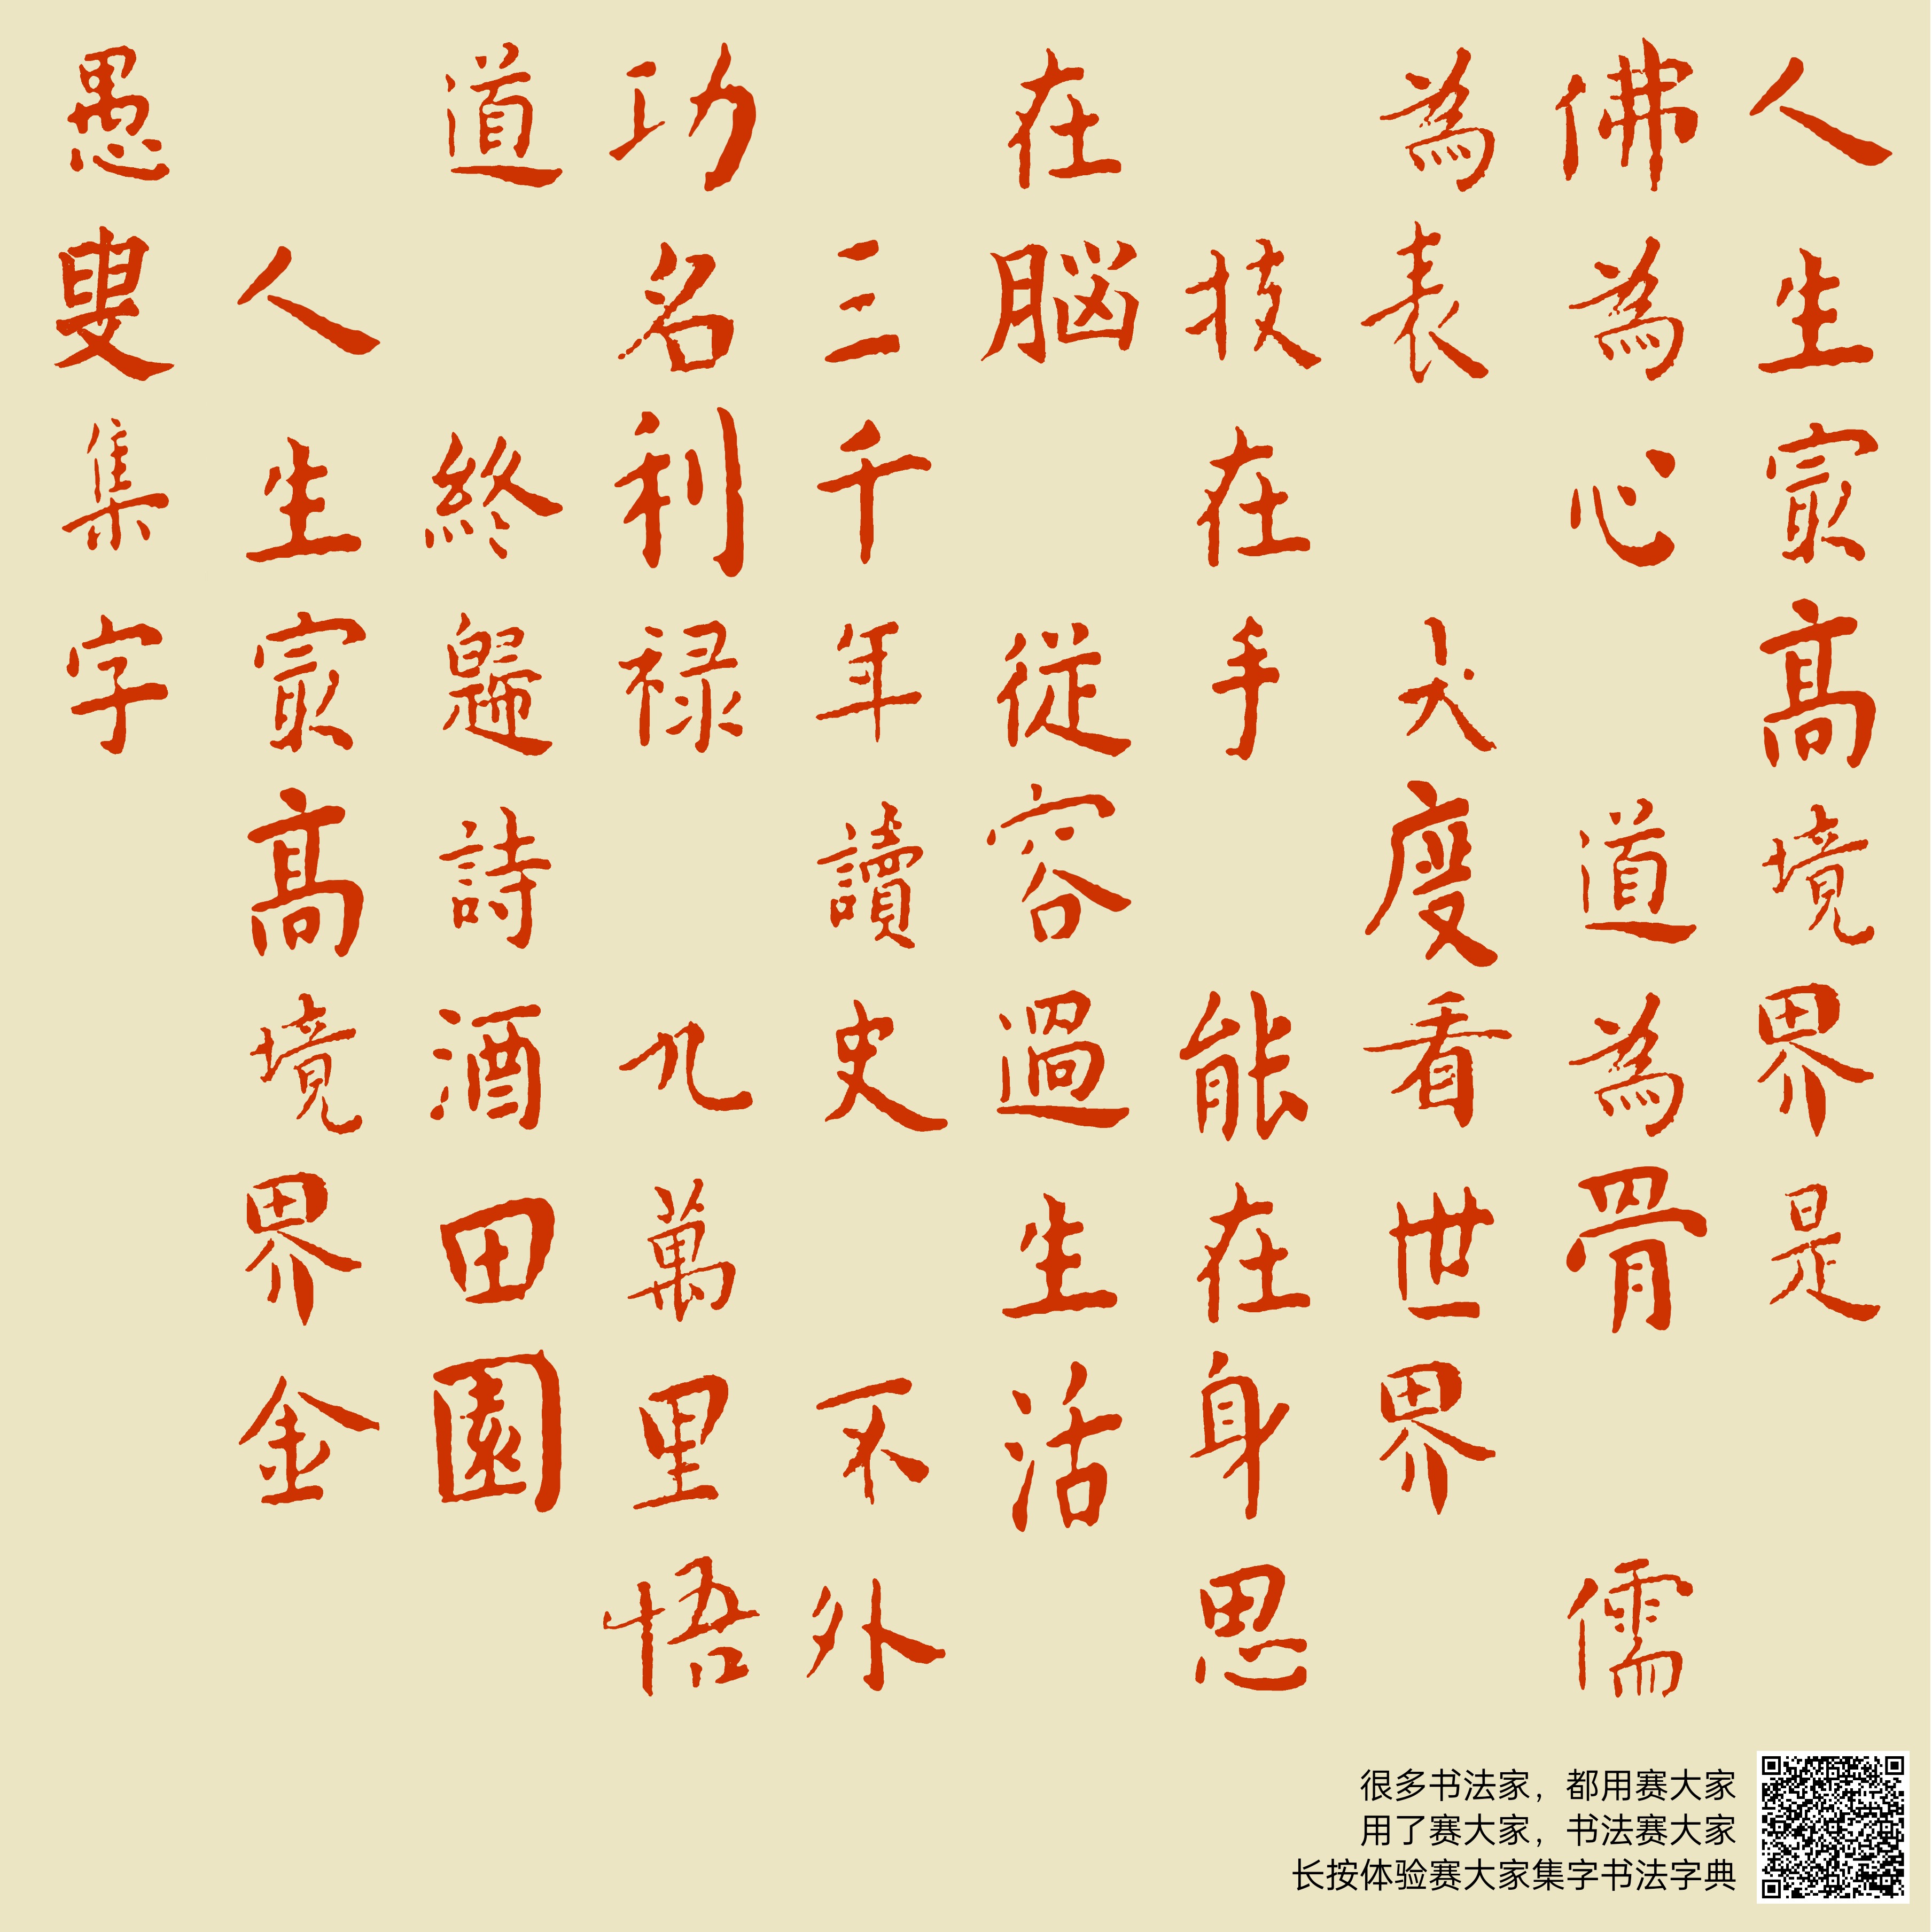 人生最高境界是
佛為心 道為骨 儒
為表 大度看世界
技在手 能在身 思
在腦 從容過生活
三千年讀史 不外
功名利禄 九萬里悟
道 終歸詩酒田園
人生最高境界金
愚叟集字
很多书法家，都用赛大家
用了赛大家，书法赛大家
长按体验赛大家集字书法字典